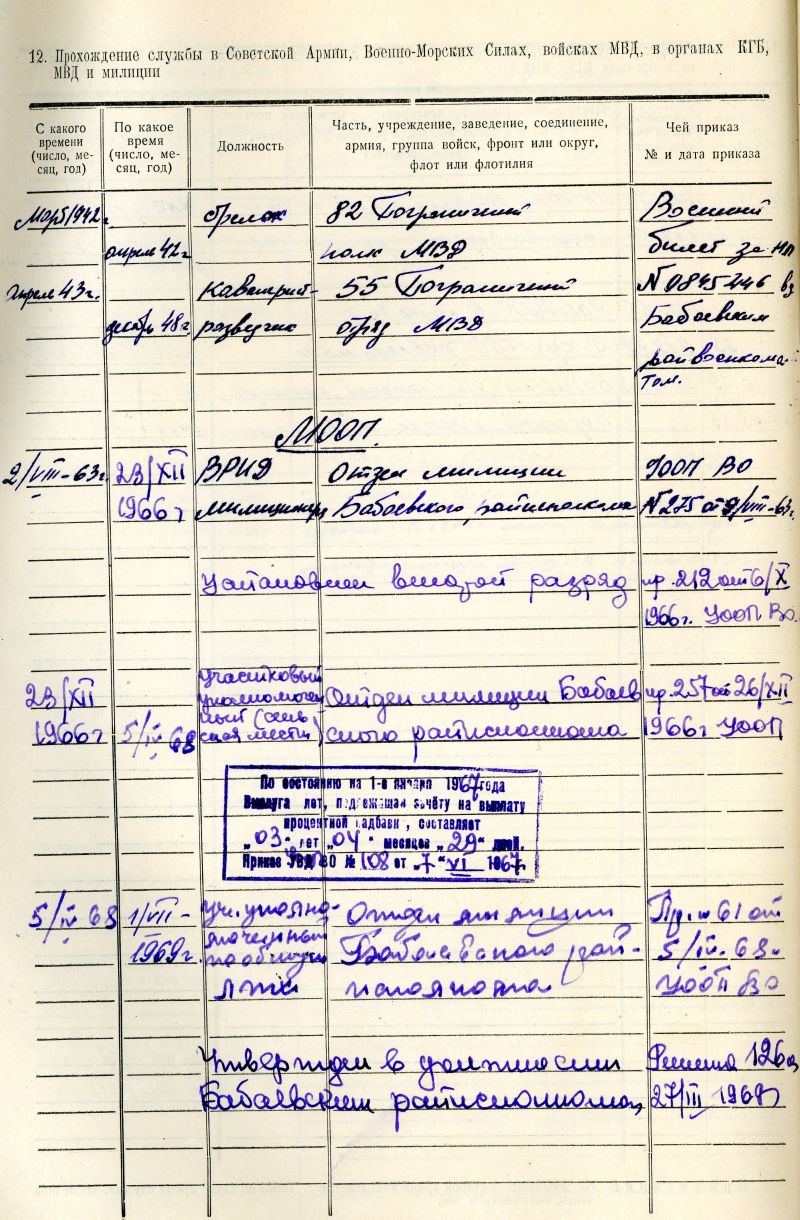 12. Прохождение службы в Советской Армии, Военно-Морских Силах, войсках МВД, в органах КГБ,
МВД и милиции
С какого времени (число, месяц, год)
По какое время (число, месяц, год)
Должность
Часть, учреждение, заведение, соединение, армия, группа войск, фронт или округ, флот или флотилия
Чей приказ № и дата приказа
Март 1942 г. стрелок 82 Пограничный Военный
апрель 42 г. полк МВД билет за НП
Апрель 43 г. кавалерист- 55 Пограничный
декабрь 48 г. разведчик отряд МВД Бабаевским
райвоенкома-
том.
МООП.
2/VIII-63г. 23/XII ВРИД Отдел милиции УООП ВО
1966 г милиционера Бабаевского райисполкома N 275 от 9/VIII-63г.
Установлен второй разряд пр. 212 от 6/X
1966 г. УООП ВО.
участковый
23/XII уполномочен- Отдел милиции Бабаев пр. 257 от 26/XII
ный (сель
1966 г 5/IV 68 ская местн) ского райисполкома 1966 г УООП
По состоянию на 1-е января 1967 года
Выслуга лет, подлежащая зачёту на выплату
процентной надбавки, составляет
„03" лет „04" месяцев „29" дней.
Приказ УВД ВО № 108 от „7" VI 1967.
5/IV 68 1/VII- Уч. уполно- Отдел милиции Пр. № 61 от
1969 г. моченный Бабаевского рай- 5/IV. 68 г.
по обслуж
исполкома УООП ВО
Утвержден в должности Решение 126 от
Бабаевским райисполкомом 27/III 1968